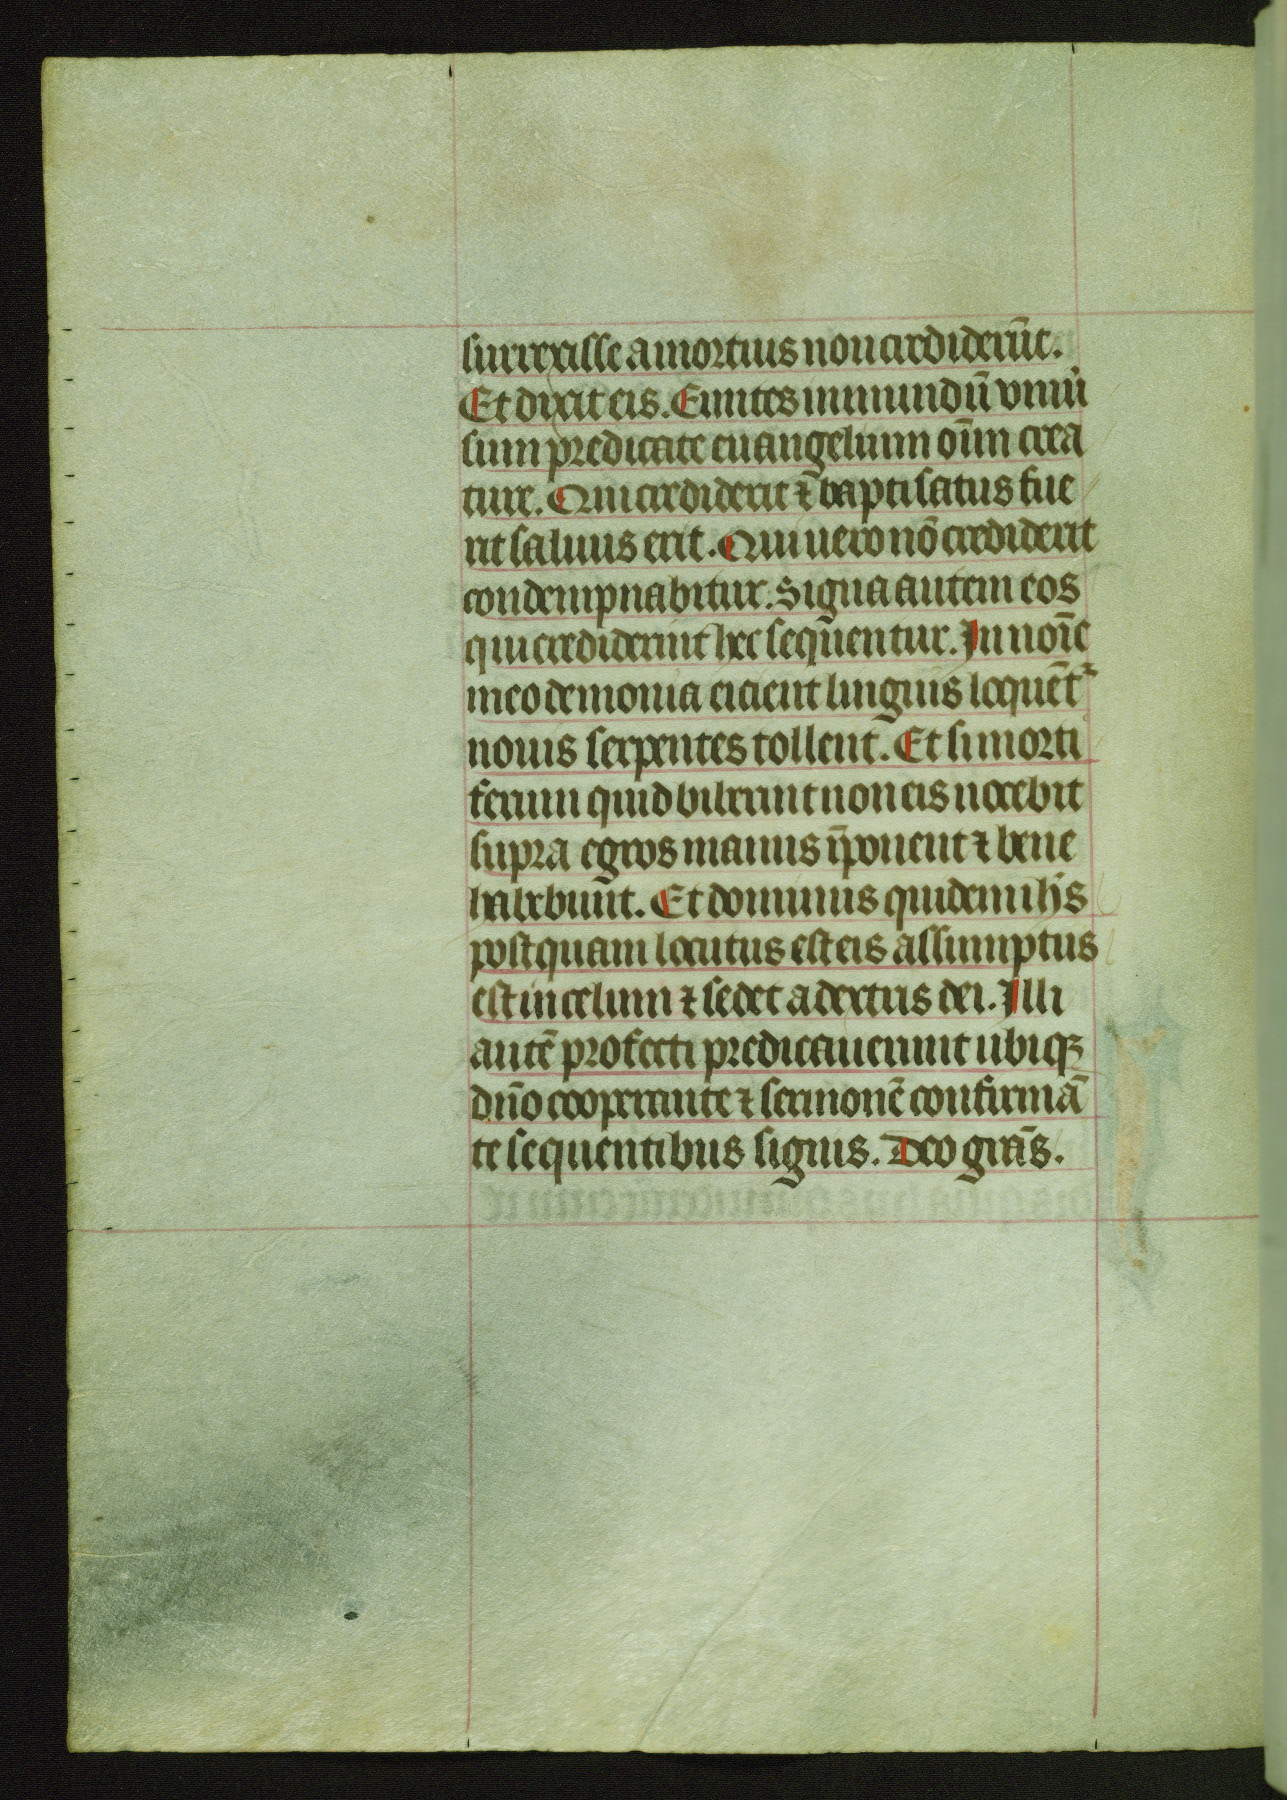 surrexisse a mortuis non crediderūt.
Et dixit eis. Euntes in mundū vniu̾
sum predicate euangelium oīm crea
ture. Qui crediderit ⁊̄ baptisatus fue
rit saluus erit. Qui uero nō crediderit
condempnabitur. Signa autem eos
qui crediderint hec sequentur. In noīe
meo demonia eicient linguis loquēt᷑
nouis serpentes tollent. Et si morti
ferum quid biberint non eis nocebit
supra egros manus īponent ⁊ bene
habebunt. Et dominus quidem ih̄s
postquam locutus est eis assumptus
est in celum ⁊ sedet a dextris dei. Illi
autē profecti predicauerunt ubiqꝫ
dn̄o cooperante ⁊ sermonē confirmā
te sequentibus signis. Deo grās.